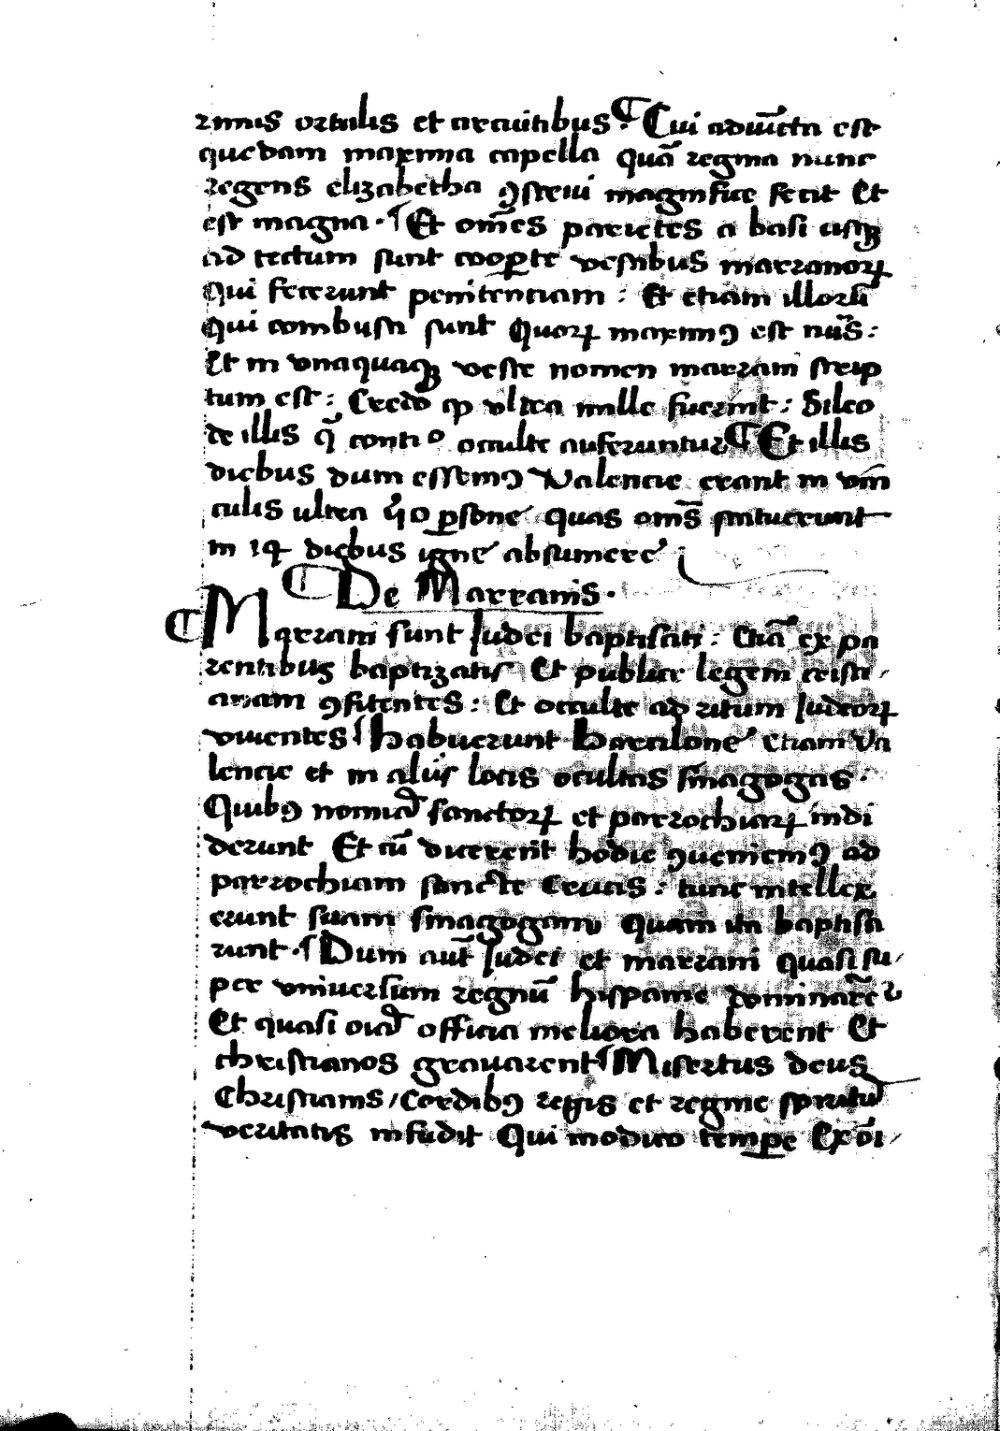 rinis ortulis et arcuitibus. ¶ Cui adiūcta est
quedam maxima capella quā regina nunc
regens elizabetha ꝯstrui magnifice fecit Et
est magna. Et om̄es parietes a basi usqꝫ
ad tectum sunt cooꝑte vestibus marranoꝝ
Qui fecerunt penitentiam : Et etiam illorū
qui combusti sunt Quoꝝ maximꝰ est nūs :
Et in vnaquaqꝫ veste nomen marrani scrip
tum est : Credo ꝙ vltra mille fuerint : Sileo
de illis q̄ conti° occulte auferuntur ¶ Et illis
diebus dum essemꝰ Valencie erant in vin
culis ultra ꝑsone quas om̄s statuerunt
in 14 diebus igne absumere
¶ De Marranis.
¶ Marrani sunt Iudei baptisati : Etiā ex pa
rentibus baptizatis Et publice legem cristi
anam ꝯfitentes : Et occulte ad ritum Iudeoꝝ
viuentes Habuerunt Barcilone etiam Va
lencie et in aliis locis ocultas sinagogas.
Quibꝰ nomina sanctoꝝ et parrochiaꝝ indi
derunt Et cū dicerent hodie ꝯueniemꝰ ad
parrochiam sancte Crucis : tunc intellex
erunt suam sinagogam quam ita baptisa
runt. Dum aut̄ Iudei et marrani quasi su
per vniuersum regnū hispanie dominarē
Et quasi oīa officia meliora haberent Et
christianos grauarent Misertus deus
Christianis / Cordibꝰ regis et regine spiritū
veritatis infudit Qui modico temꝑe Ex oī